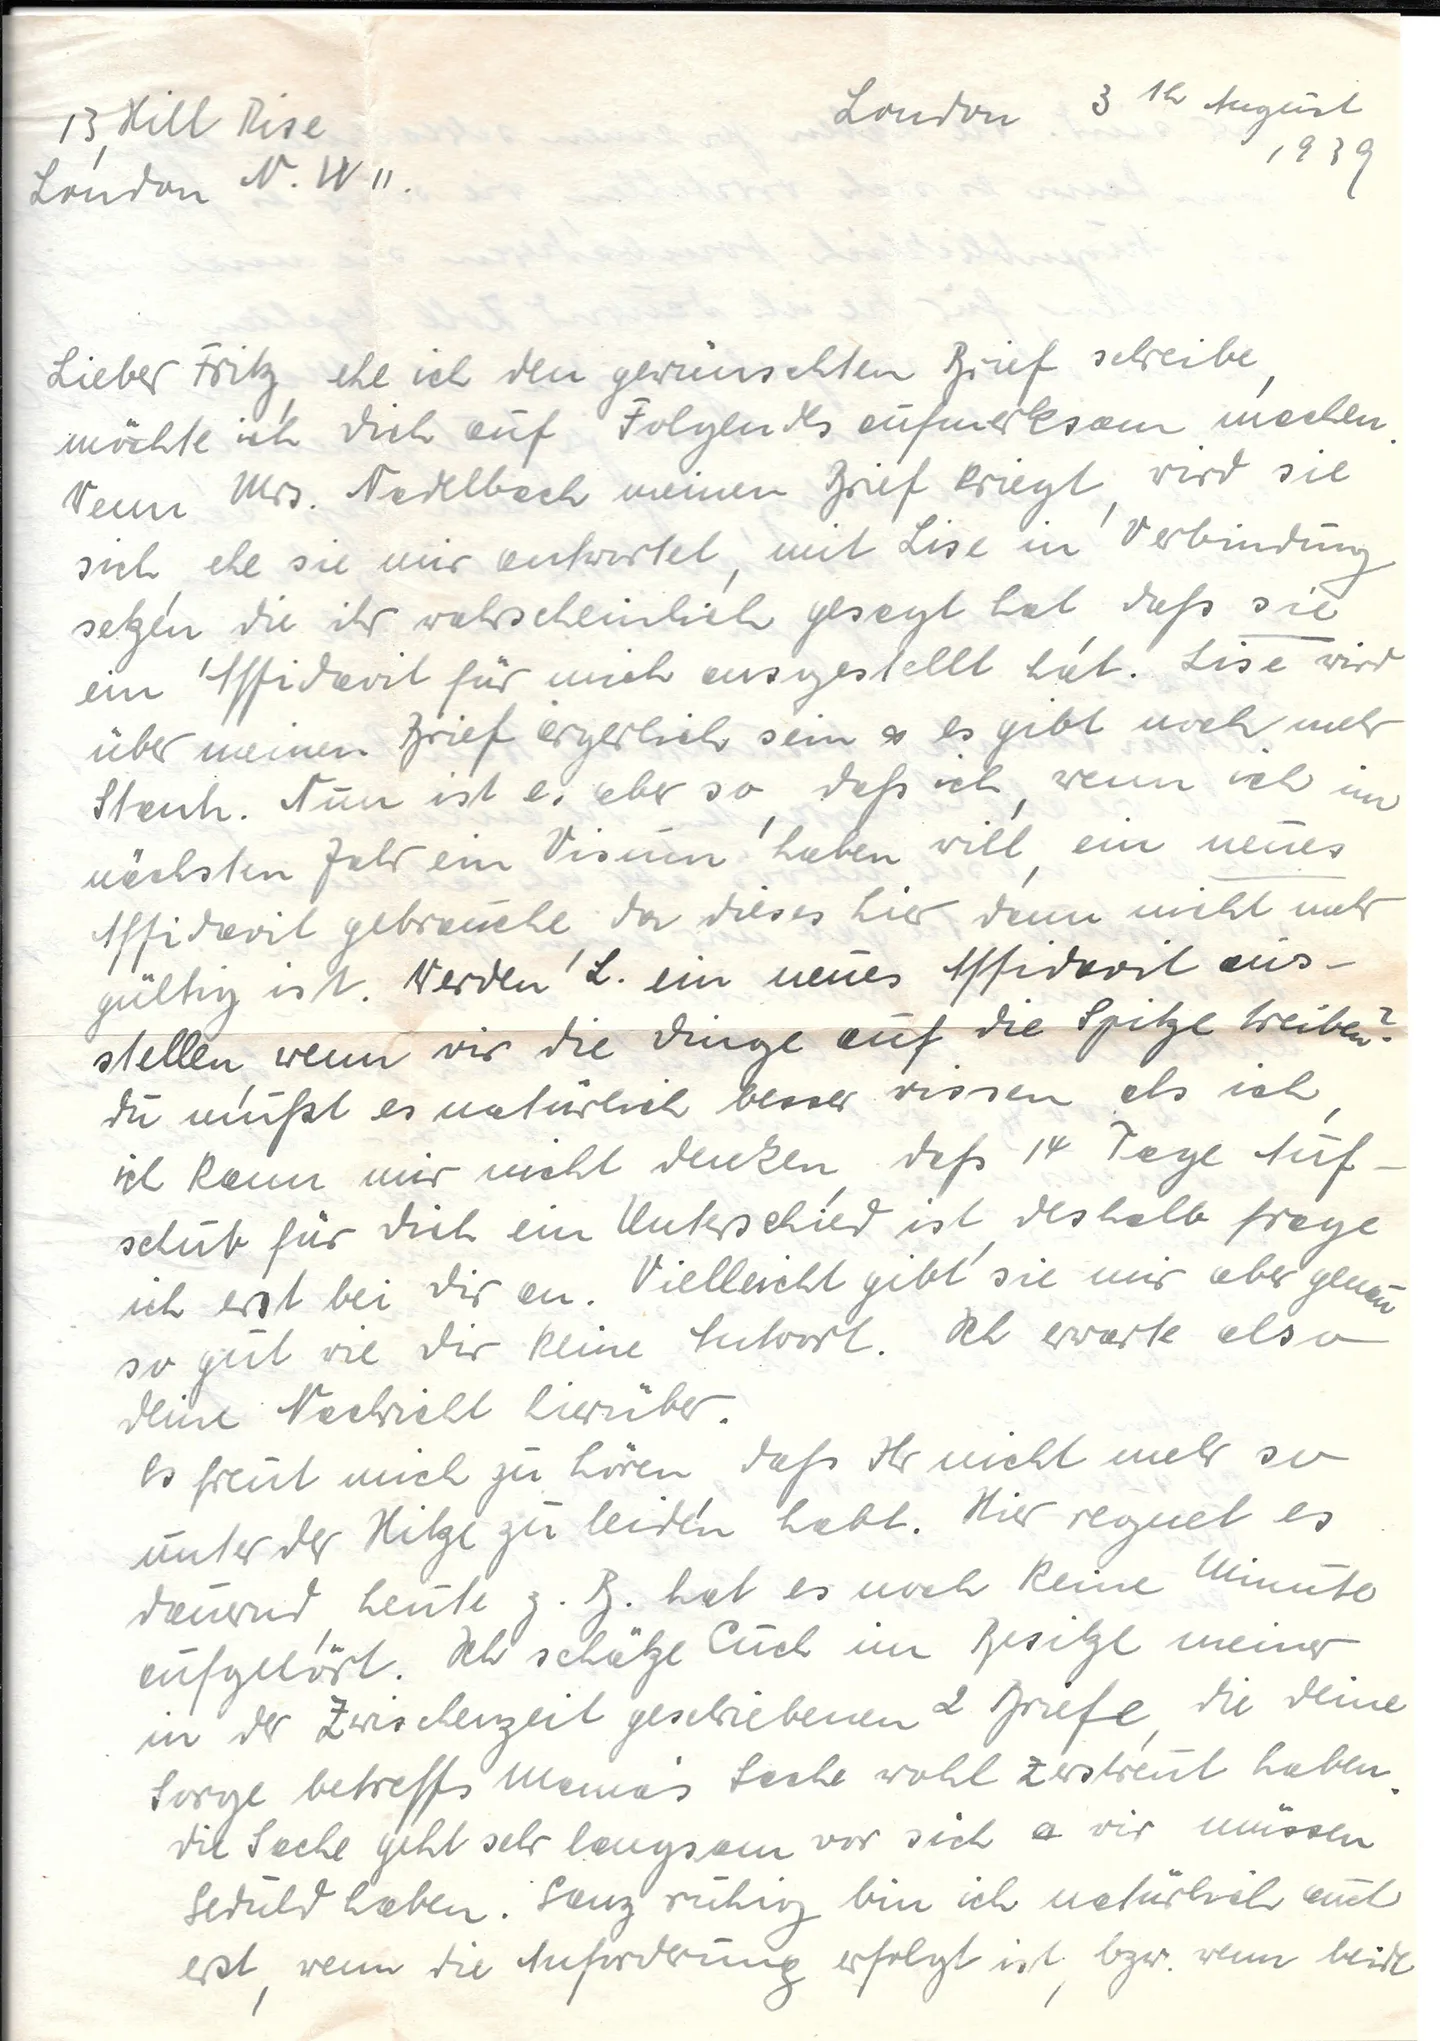 13, Hill Rise
London N.W 11.
London 3th August
1939
Lieber Fritz, ehe ich den gewünschten Brief schreibe,
möchte ich Dich auf Folgendes aufmerksam machen.
Wenn Mrs. Nadelbach meinen Brief kriegt, wird sie
sich, ehe sie mir antwortet, mit Lise in Verbindung
setzen, die ihr wahrscheinlich gesagt hat, daß sie
ein Affidavit für mich ausgestellt hat. Lise wird
über meinen Brief ärgerlich sein & es gibt noch mehr
Stank. Nun ist es aber so, daß ich, wenn ich im
nächsten Jahr ein Visum haben will, ein neues
Affidavit gebrauche, da dieses hier dann nicht mehr
gültig ist. Werden L. ein neues Affidavit aus-
stellen, wenn wir die Dinge auf die Spitze treiben?
Du mußt es natürlich besser wissen als ich,
ich kann mir nicht denken, daß 14 Tage Auf-
schub für Dich ein Unterschied ist, deshalb frage
ich erst bei Dir an. Vielleicht gibt sie mir aber genau
so gut wie Dir keine Antwort. Ich erwarte also
Deine Nachricht hierüber.
Es freut mich zu hören, daß Ihr nicht mehr so
unter der Hitze zu leiden habt. Hier regnet es
dauernd, heute z. B. hat es noch keine Minute
aufgehört. Ich schätze Euch im Besitze meiner
in der Zwischenzeit geschriebenen 2 Briefe, die Deine
Sorge betreffs Mama's Sache wohl zerstreut haben.
Die Sache geht sehr langsam vor sich & wir müssen
Geduld haben. Ganz ruhig bin ich natürlich auch
erst, wenn die Anforderung erfolgt ist, bzw. wenn beide